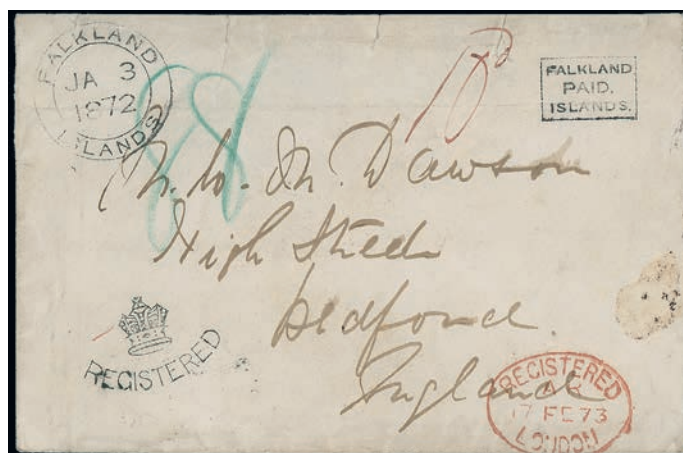 FALKLAND
JA 3
1872
ISLANDS
88
FALKLAND
PAID.
ISLANDS.
Dawson
High Street
Bedford
England
REGISTERED
REGISTERED
17 FE 73
LONDON